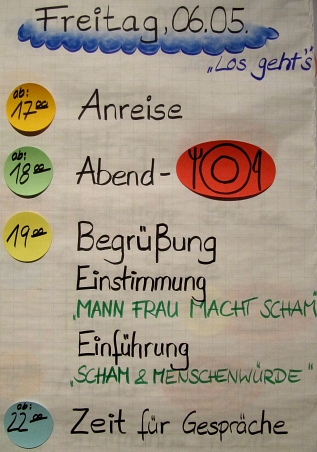 Freitag, 06.05.
„Los geht's"
ab: 17 00 Anreise
ab: 18 00 Abend-
19 00 Begrüßung
Einstimmung
„MANN FRAU MACHT SCHAM"
Einführung
„SCHAM & MENSCHENWÜRDE"
ab: 22 00 Zeit für Gespräche